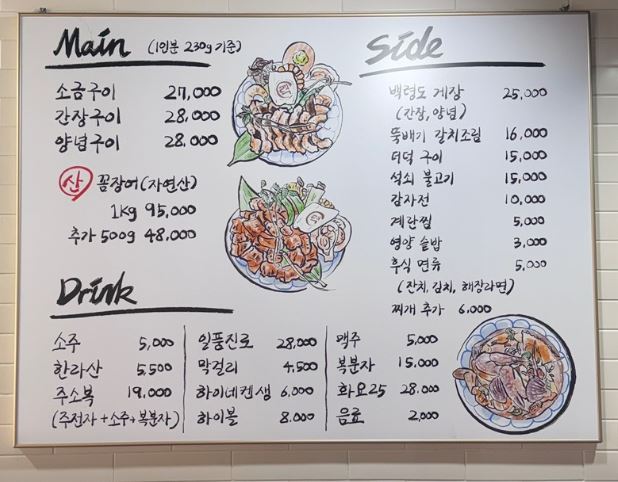 Main (1인분 230g 기준)
소금구이 27,000
간장구이 28,000
양념구이 28,000
산 꼼장어(자연산)
1kg 95,000
추가 500g 48,000
Side
백령도 게장 25,000
(간장, 양념)
뚝배기 갈치조림 16,000
더덕 구이 15,000
석쇠 불고기 15,000
감자전 10,000
계란찜 5,000
영양 솥밥 3,000
후식 면류 5,000
(잔치, 김치, 해장라면)
찌개 추가 6,000
Drink
소주 5,000
한라산 5,500
주소복 19,000
(주전자+소주+복분자)
일품진로 28,000
막걸리 4,500
하이네켄 생 6,000
하이볼 8,000
맥주 5,000
복분자 15,000
화요25 28,000
음료 2,000